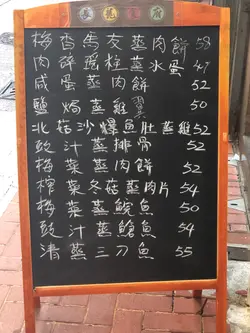 梅香馬友蒸肉餅 58
肉碎瑤柱蒸水蛋 47
咸蛋蒸肉餅 52
鹽焗蒸雞翼 50
北菇沙爆魚肚蒸雞 52
豉汁蒸排骨 52
梅菜蒸肉餅 52
榨菜冬菇蒸肉片 54
梅菜蒸鯇魚 50
豉汁蒸鱠魚 54
清蒸三刀魚 55